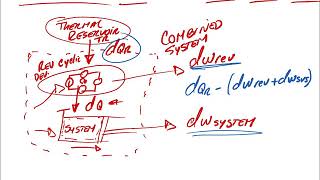 THERMAL
RESERVOIR
TR
dQR
COMBINED
SYSTEM
REV CYCLIC
DEV.
dWREV
dQR - (dWREV + dWSYS)
dQ
SYSTEM
dWSYSTEM